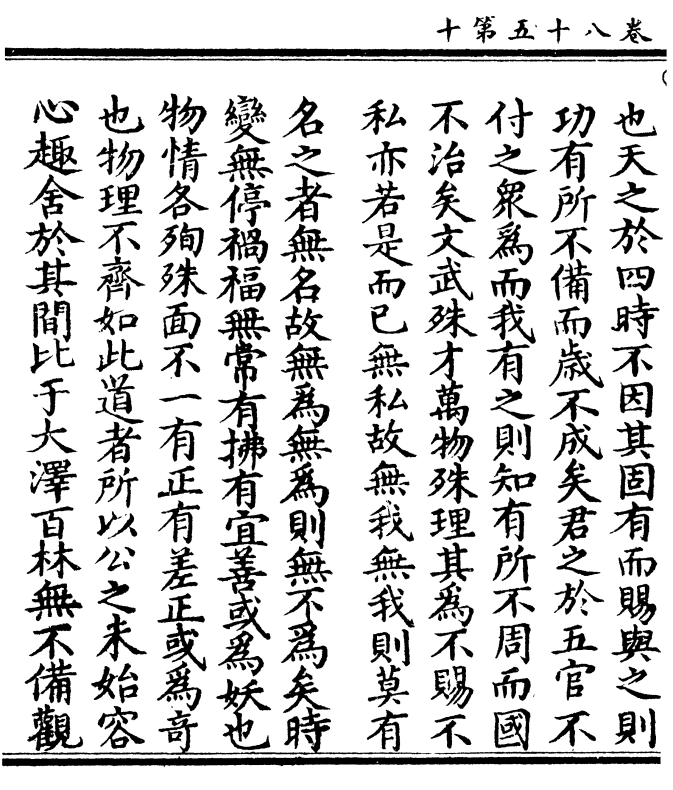 卷八十五第十
也天之於四時不因其固有而賜與之則
功有所不備而歲不成矣君之於五官不
付之衆爲而我有之則知有所不周而國
不治矣文武殊才萬物殊理其爲不賜不
私亦若是而已無私故無我無我則莫有
名之者無名故無爲無爲則無不爲矣時
變無停禍福無常有拂有宜善或爲妖也
物情各殉殊面不一有正有差正或爲奇
也物理不齊如此道者所以公之未始容
心趣舍於其間比于大澤百林無不備觀